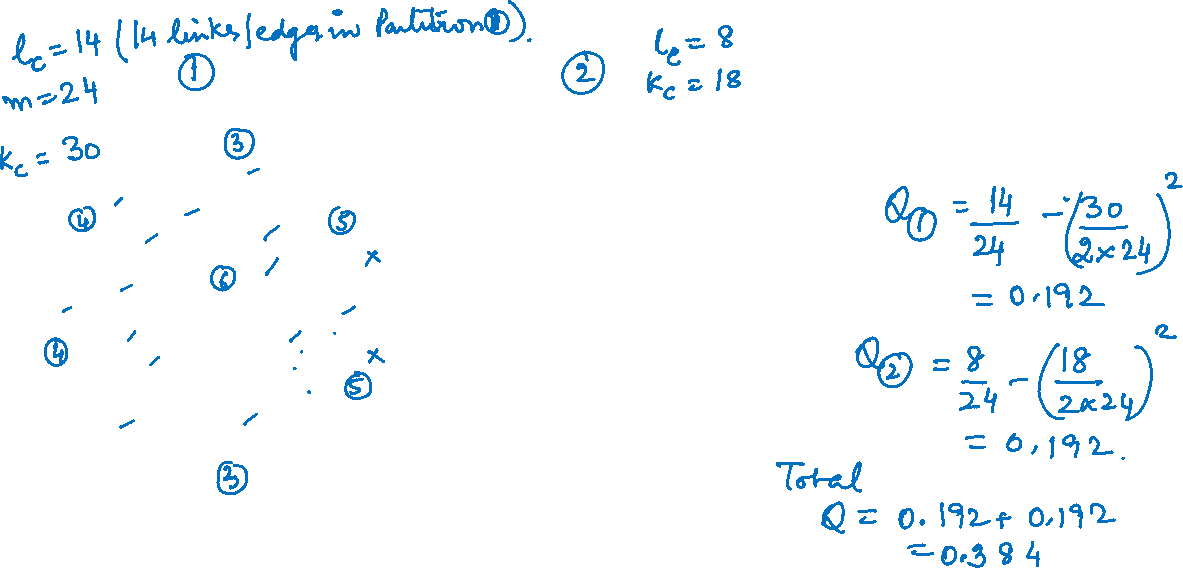 lc = 14 (14 links/edges in Partition ①).
①
m = 24
Kc = 30
② lc = 8
Kc = 18
③
④ ⑤
⑥
④
⑤
③
Q① = 14/24 - (30/2×24)²
= 0.192
Q② = 8/24 - (18/2×24)²
= 0.192.
Total
Q = 0.192 + 0.192
= 0.384